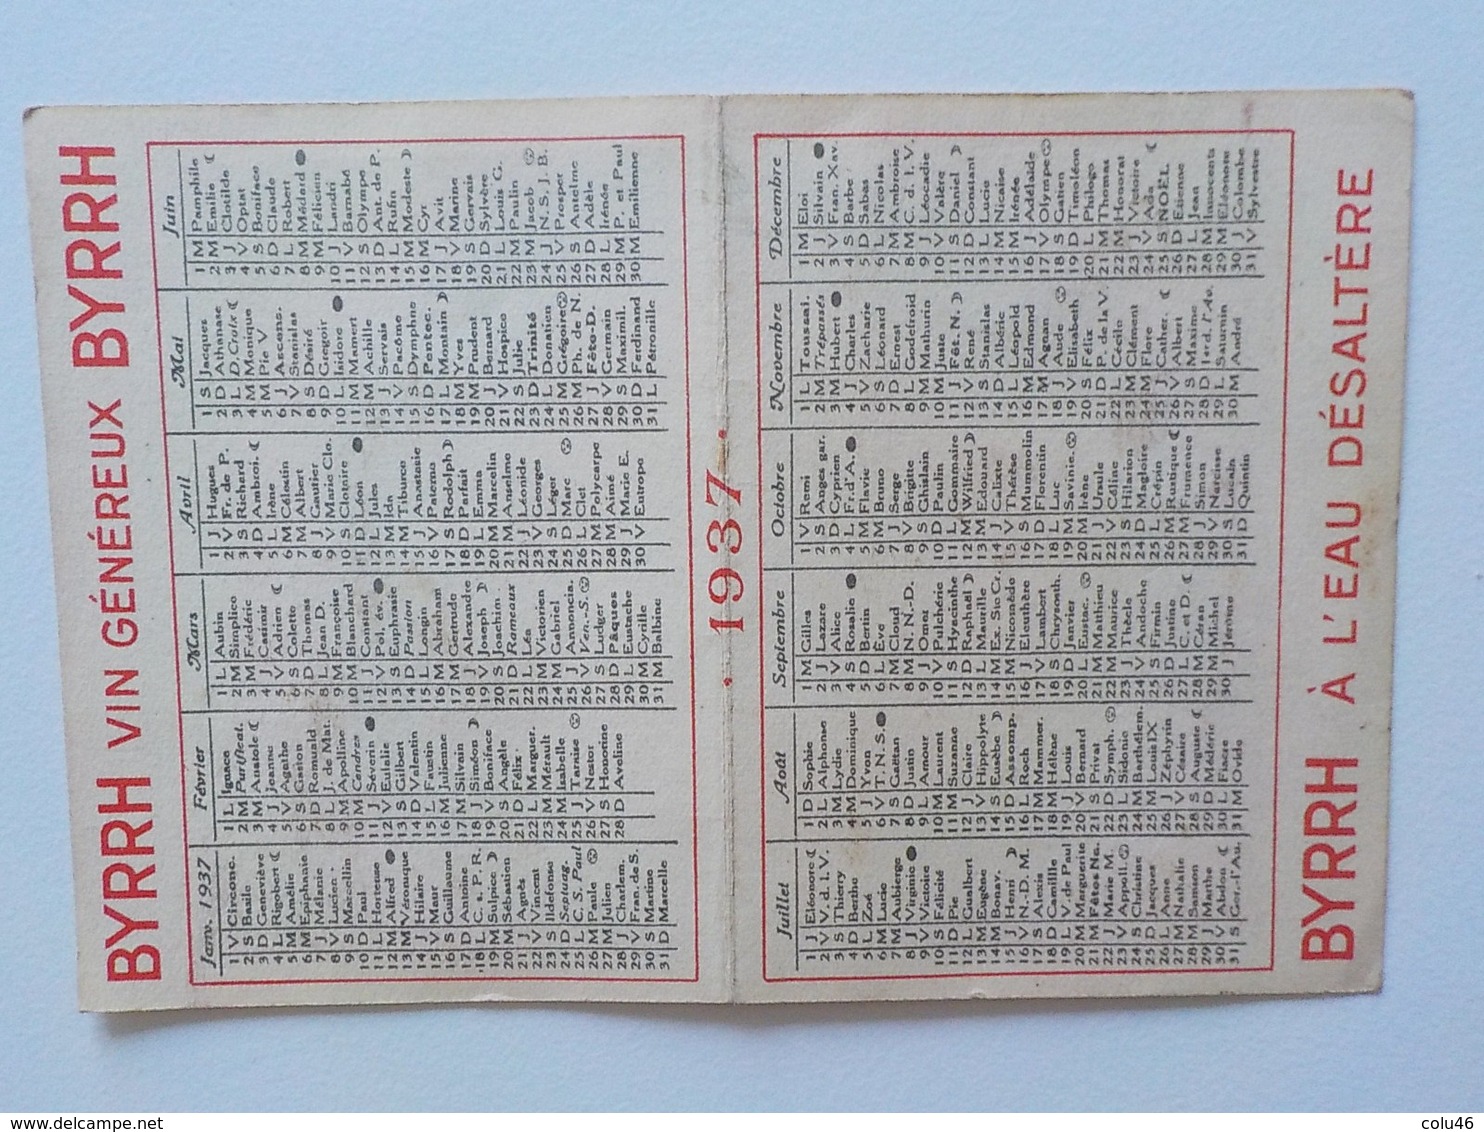 BYRRH VIN GÉNÉREUX BYRRH
Janv. 1937
1 V Circonc.
2 S Basile
3 D Geneviève
4 L Rigobert
5 M Amélie
6 M Epiphanie
7 J Mélanie
8 V Lucien
9 S Marcellin
10 D Paul
11 L Hortense
12 M Alfred
13 M Véronique
14 J Hilaire
15 V Maur
16 S Guillaume
17 D Antoine
18 L C. s. P. R.
19 M Sulpice
20 M Sébastien
21 J Agnès
22 V Vincent
23 S Ildefons
24 D Septuag.
25 L C. S. Paul
26 M Paule
27 M Julien
28 J Charlem.
29 V Fran. de S.
30 S Martine
31 D Marcelle
Février
1 L Ignace
2 M Purificat.
3 M Anatole
4 J Jeanne
5 V Agathe
6 S Gaston
7 D Romuald
8 L J. de Mat.
9 M Apolline
10 M Cendres
11 J Séverin
12 V Eulalie
13 S Gilbert
14 D Valentin
15 L Faustin
16 M Julienne
17 M Silvain
18 J Siméon
19 V Boniface
20 S Angèle
21 D Félix
22 L Marguer.
23 M Mérault
24 M Isabelle
25 J Taraise
26 V Nestor
27 S Honorine
28 D Aveline
Mars
1 L Aubin
2 M Simplice
3 M Frédéric
4 J Casimir
5 V Adrien
6 S Colette
7 D Thomas
8 L Jean D.
9 M Françoise
10 M Blanchard
11 J Constant
12 V Pol, év.
13 S Euphrasie
14 D Passion
15 L Longin
16 M Abraham
17 M Gertrude
18 J Alexandre
19 V Joseph
20 S Joachim
21 D Rameaux
22 L Léa
23 M Victorien
24 M Gabriel
25 J Annoncia.
26 V Ven.-S.
27 S Ludger
28 D PÂQUES
29 L Eustache
30 M Cyrille
31 M Balbine
Avril
1 J Hugues
2 V Fr. de P.
3 S Richard
4 D Ambroi.
5 L Irène
6 M Célestin
7 M Albert
8 J Gautier
9 V Marie Clo.
10 S Clotaire
11 D Léon
12 L Jules
13 M Ida
14 M Tiburce
15 J Anastasie
16 V Paterne
17 S Rodolph
18 D Parfait
19 L Emma
20 M Marcelin
21 M Anselme
22 J Léonide
23 V Georges
24 S Léger
25 D Marc
26 L Clet
27 M Polycarpe
28 M Aimé
29 J Marie E.
30 V Eutrope
Mai
1 S Jacques
2 D Athanase
3 L D. Croix
4 M Monique
5 M Pie V
6 J Ascens.
7 V Stanislas
8 S Désiré
9 D Gregoir
10 L Isidore
11 M Mamert
12 M Achille
13 J Servais
14 V Pacôme
15 S Dymphne
16 D Pentec.
17 L Montain
18 M Yves
19 M Prudent
20 J Bernard
21 V Hospice
22 S Julie
23 D Trinité
24 L Donatien
25 M Grégoire
26 M Ph. de N.
27 J Fête-D.
28 V Germain
29 S Maximil.
30 D Ferdinand
31 L Pétronille
Juin
1 M Pamphile
2 M Emilie
3 J Clotilde
4 V Optat
5 S Boniface
6 D Claude
7 L Robert
8 M Médard
9 M Félicien
10 J Landri
11 V Barnabé
12 S Olympe
13 D Ant. de P.
14 L Rufin
15 M Modeste
16 M Cyr
17 J Avit
18 V Marine
19 S Gervais
20 D Sylvère
21 L Louis G.
22 M Paulin
23 M Jacob
24 J N. S. J. B.
25 V Prosper
26 S Antelme
27 D Adèle
28 L Irénée
29 M P. et Paul
30 M Emilienne
1937
Juillet
1 J Eléonore
2 V V. d. l. V.
3 S Thierry
4 D Berthe
5 L Zoé
6 M Lucie
7 M Aubierge
8 J Virginie
9 V Victoire
10 S Félicité
11 D Pie
12 L Gualbert
13 M Eugène
14 M Bonav.
15 J Henri
16 V N.-D. M.
17 S Alexis
18 D Camille
19 L V. de Paul
20 M Marguerite
21 M Fêtes Na.
22 J Marie M.
23 V Appoll.
24 S Christine
25 D Jacques
26 L Anne
27 M Nathalie
28 M Samson
29 J Marthe
30 V Abdon
31 S Ger.-l'Au.
Août
1 D Sophie
2 L Alphonse
3 M Lydie
4 M Dominique
5 J Yvon
6 V T. N. S.
7 S Gaëtan
8 D Justin
9 L Amour
10 M Laurent
11 M Suzanne
12 J Claire
13 V Hippolyte
14 S Eusèbe
15 D Assomp.
16 L Roch
17 M Mammer.
18 M Hélène
19 J Louis
20 V Bernard
21 S Privat
22 D Symph.
23 L Sidonie
24 M Barthélem.
25 M Louis IX
26 J Zéphyrin
27 V Césaire
28 S Auguste
29 D Médéric
30 L Fiacre
31 M Ovide
Septembre
1 M Gilles
2 J Lazare
3 V Alice
4 S Rosalie
5 D Bertin
6 L Eve
7 M Cloud
8 M N. N.-D.
9 J Omer
10 V Pulchérie
11 S Hyacinthe
12 D Raphaël
13 L Maurille
14 M Ex. Ste Cr.
15 M Nicomède
16 J Eleuthère
17 V Lambert
18 S Chrysosth.
19 D Janvier
20 L Eustac.
21 M Matthieu
22 M Maurice
23 J Thècle
24 V Andoche
25 S Firmin
26 D Justine
27 L C. et D.
28 M Céran
29 M Michel
30 J Jérôme
Octobre
1 V Remi
2 S Anges gar.
3 D Cyprien
4 L Fr. d'A.
5 M Flavie
6 M Bruno
7 J Serge
8 V Brigite
9 S Ghislain
10 D Paulin
11 L Gommaire
12 M Wilfried
13 M Edouard
14 J Calixte
15 V Thérèse
16 S Mummolin
17 D Florentin
18 L Luc
19 M Savinie.
20 M Irène
21 J Ursule
22 V Céline
23 S Hilarion
24 D Magloire
25 L Crépin
26 M Rustique
27 M Frumence
28 J Simon
29 V Narcisse
30 S Lucain
31 D Quintin
Novembre
1 L Toussai.
2 M Trépassés
3 M Hubert
4 J Charles
5 V Zacharie
6 S Léonard
7 D Ernest
8 L Godefroid
9 M Mathurin
10 M Juste
11 J Fêt. N.
12 V René
13 S Stanislas
14 D Albéric
15 L Léopold
16 M Edmond
17 M Agnan
18 J Aude
19 V Elisabeth
20 S Félix
21 D P. de la V.
22 L Cécile
23 M Clément
24 M Flore
25 J Cather.
26 V Albert
27 S Maxime
28 D 1erd. l'Av.
29 L Saturnin
30 M André
Décembre
1 M Eloi
2 J Silvain
3 V Fran. Xav.
4 S Barbe
5 D Sabas
6 L Nicolas
7 M Ambroise
8 M C. d. l. V.
9 J Léocadie
10 V Valère
11 S Daniel
12 D Constant
13 L Lucie
14 M Nicaise
15 M Irénée
16 J Adélaïde
17 V Olympe
18 S Gatien
19 D Timoléon
20 L Philogo
21 M Thomas
22 M Honorat
23 J Victoire
24 V Ada
25 S NOËL
26 D Etienne
27 L Jean
28 M Innocents
29 M Eléonore
30 J Colombe
31 V Sylvestre
BYRRH À L'EAU DÉSALTÈRE
delcampe.net
colu46